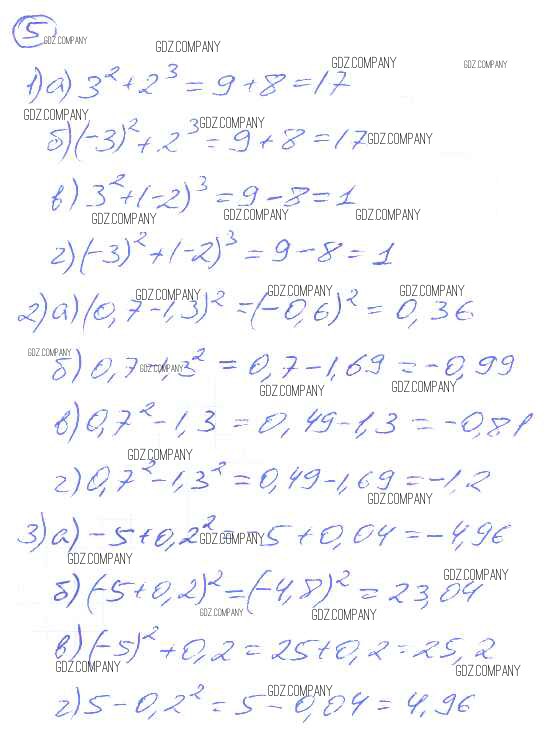 5
GDZ.COMPANY
GDZ.COMPANY
GDZ.COMPANY
GDZ.COMPANY
1) а) 3² + 2³ = 9 + 8 = 17
GDZ.COMPANY
GDZ.COMPANY
б) (-3)² + 2³ = 9 + 8 = 17
GDZ.COMPANY
в) 3² + (-2)³ = 9 - 8 = 1
GDZ.COMPANY GDZ.COMPANY GDZ.COMPANY
г) (-3)² + (-2)³ = 9 - 8 = 1
GDZ.COMPANY GDZ.COMPANY GDZ.COMPANY
2) а) (0,7 - 1,3)² = (-0,6)² = 0,36
GDZ.COMPANY
GDZ.COMPANY
б) 0,7 - 1,3² = 0,7 - 1,69 = -0,99
GDZ.COMPANY GDZ.COMPANY
в) 0,7² - 1,3 = 0,49 - 1,3 = -0,81
GDZ.COMPANY
г) 0,7² - 1,3² = 0,49 - 1,69 = -1,2
GDZ.COMPANY
3) а) -5 + 0,2² = -5 + 0,04 = -4,96
GDZ.COMPANY
GDZ.COMPANY
GDZ.COMPANY
б) (-5 + 0,2)² = (-4,8)² = 23,04
GDZ.COMPANY GDZ.COMPANY
в) (-5)² + 0,2 = 25 + 0,2 = 25,2
GDZ.COMPANY GDZ.COMPANY
GDZ.COMPANY
г) 5 - 0,2² = 5 - 0,04 = 4,96